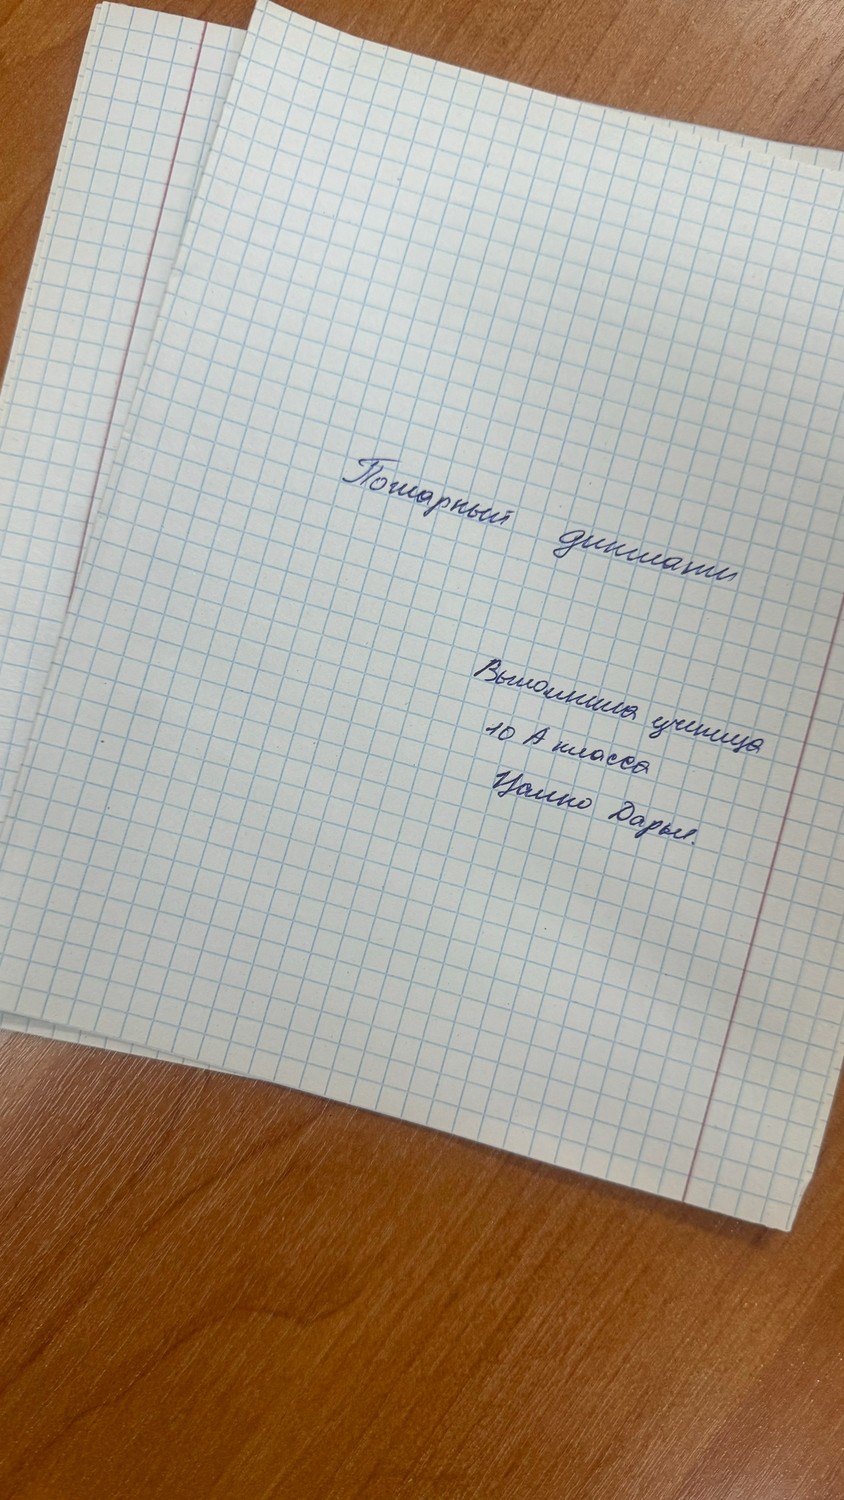 Пожарный диктант
Выполнила ученица
10 А класса
Цалко Дарья.